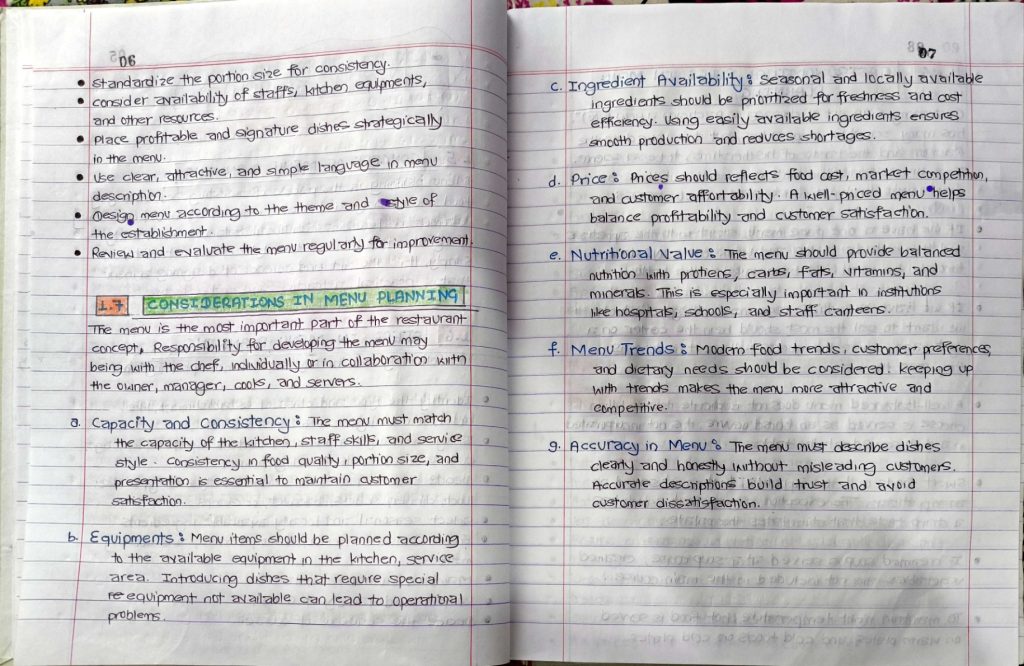 06
• Standardize the portion size for consistency.
• consider availability of staffs, kitchen equipments,
and other resources.
• Place profitable and signature dishes strategically
in the menu.
• Use clear, attractive, and simple language in menu
description.
• Design menu according to the theme and style of
the establishment.
• Review and evaluate the menu regularly for improvement.
1.7 CONSIDERATIONS IN MENU PLANNING
The menu is the most important part of the restaurant
concept, Responsibility for developing the menu may
being with the chef, individually or in collaboration with
the owner, manager, cooks, and servers.
a. Capacity and Consistency : The menu must match
the capacity of the kitchen, staff skills, and service
style. Consistency in food quality, portion size, and
presentation is essential to maintain customer
satisfaction.
b. Equipments : Menu items should be planned according
to the available equipment in the kitchen, service
area. Introducing dishes that require special
equipment not available can lead to operational
problems.
07
c. Ingredient Availability : Seasonal and locally available
ingredients should be prioritized for freshness and cost
efficiency. Using easily available ingredients ensures
smooth production and reduces shortages.
d. Price : Prices should reflects food cost, market competition,
and customer affortability. A well-priced menu helps
balance profitability and customer satisfaction.
e. Nutritional Value : The menu should provide balanced
nutrition with protiens, carbs, fats, vitamins, and
minerals. This is especially important in institutions
like hospitals, schools, and staff canteens.
f. Menu Trends : Modern food trends, customer preferences,
and dietary needs should be considered. Keeping up
with trends makes the menu more attractive and
competitive.
g. Accuracy in Menu : The menu must describe dishes
clearly and honestly without misleading customers.
Accurate descriptions build trust and avoid
customer dissatisfaction.